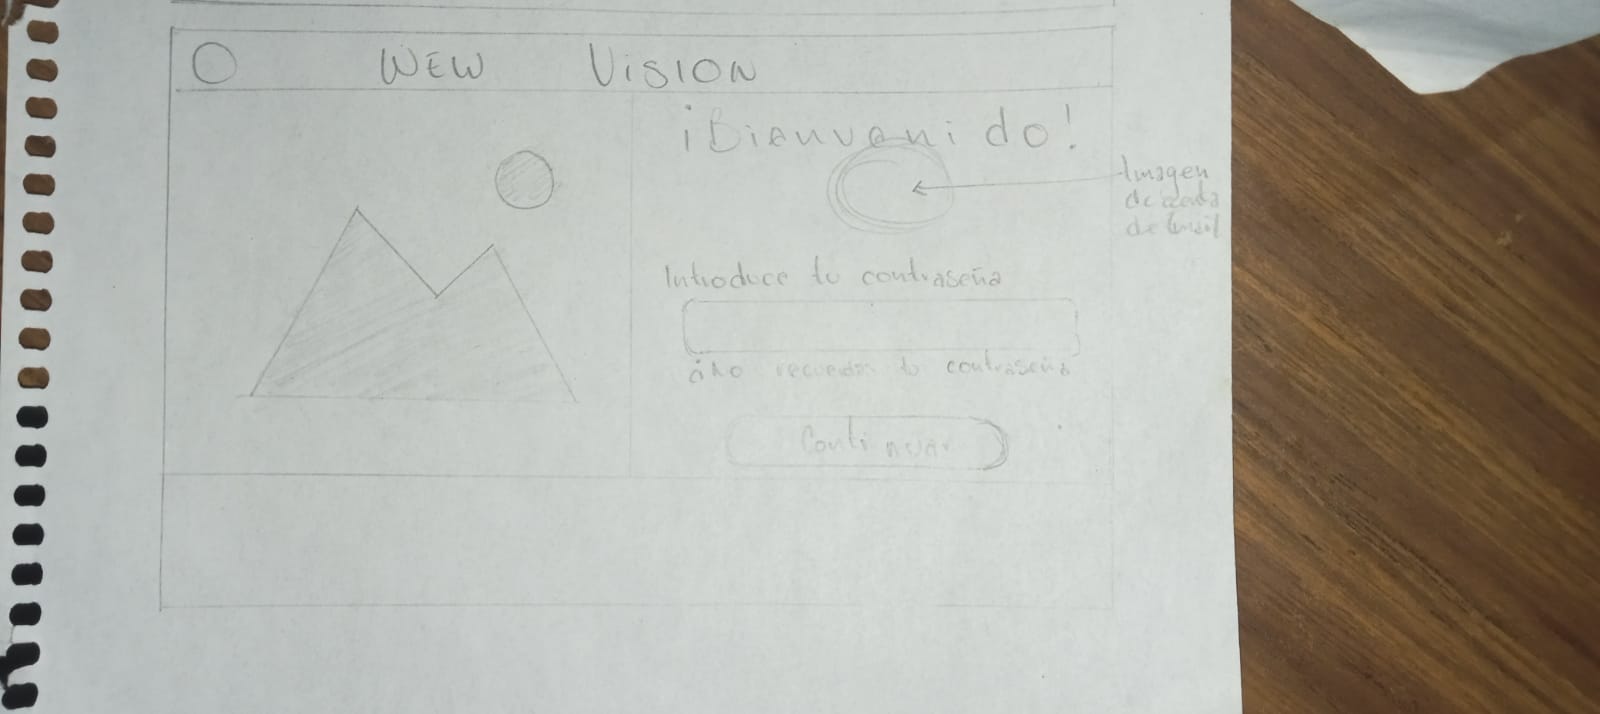 WEW VISION
¡Bienvenido!
Imagen
de cuenta
de Gmail
Introduce tu contraseña
¿No recuerdas tu contraseña
Continuar